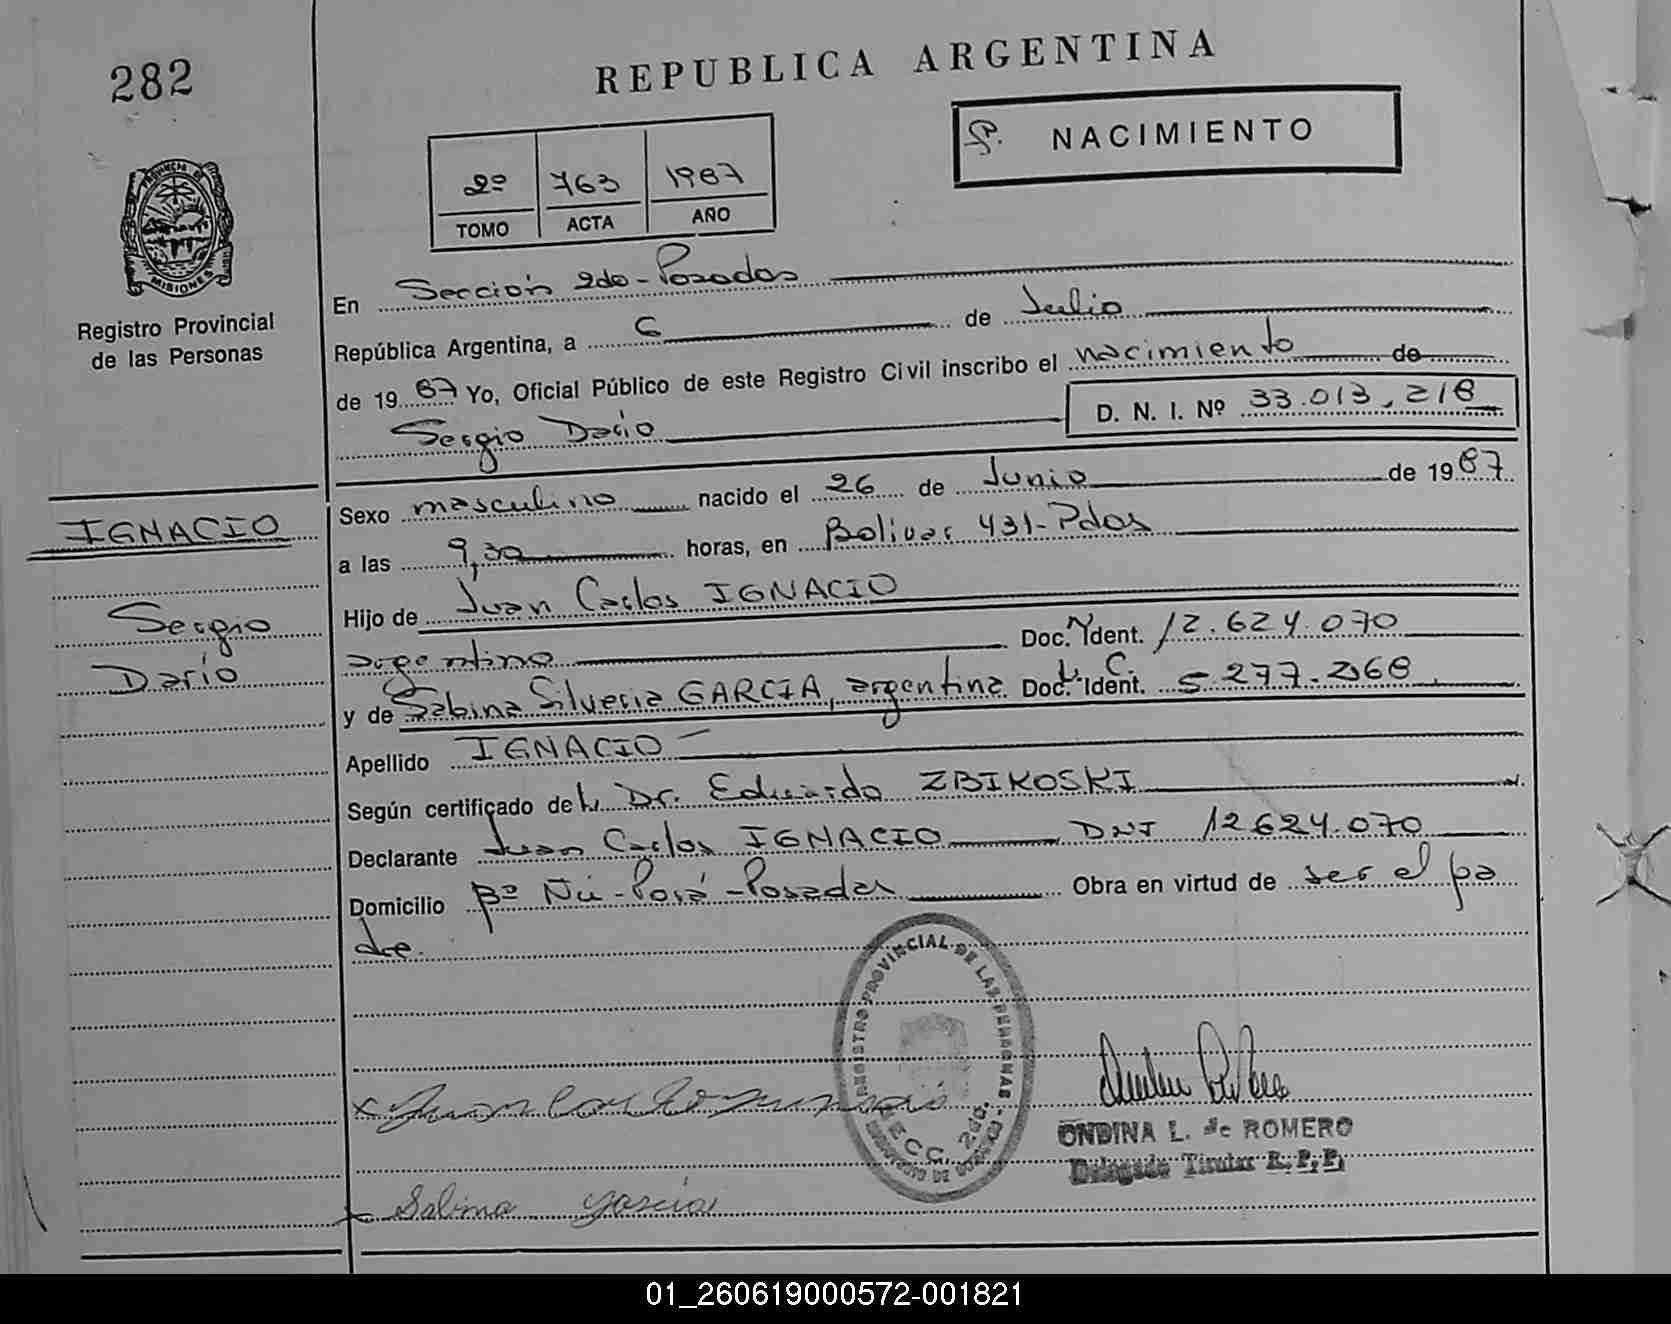 282
REPUBLICA ARGENTINA
NACIMIENTO
2º 763 1987
TOMO ACTA AÑO
PROVINCIA DE MISIONES
Registro Provincial
de las Personas
En Sección 2da - Posadas
República Argentina, a 6 de Julio
de 1987 Yo, Oficial Público de este Registro Civil inscribo el nacimiento de
Sergio Dario D. N. I. Nº 33.013.218
Sexo masculino nacido el 26 de Junio de 1987
IGNACIO
a las 9,30 horas, en Bolivar 431-Pdas
Hijo de Juan Carlos IGNACIO
Sergio
argentino Doc. Ident. 12.624.070
Darío
y de Sabina Silveria GARCIA, argentina Doc. Ident. L.C. 5.277.268
Apellido IGNACIO
Según certificado del Dr. Eduardo ZBIKOSKI
Declarante Juan Carlos IGNACIO DNI 12624.070
Domicilio Bº Ñú-Porá-Posadas Obra en virtud de ser el pa
dre.
REGISTRO PROVINCIAL DE LAS PERSONAS
SECC. 2da.
ONDINA L. de ROMERO
Delegada Titular R. P. P.
Sabina Garcia
01_260619000572-001821